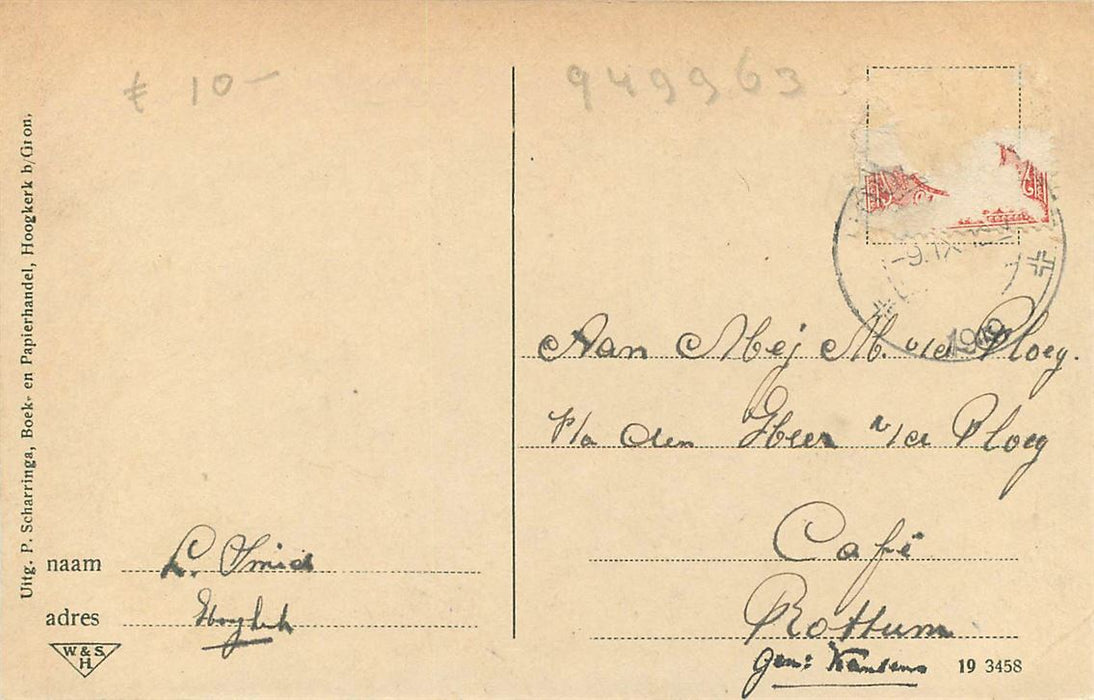 € 10-
949963
-9.IX
1949
Uitg. P. Scharringa, Boek- en Papierhandel, Hoogkerk b/Gron.
Aan Mej M. v/d Ploeg.
P/a den Heer v/d Ploeg
Café
Rottum
Gem: Kantens
naam L. Smid
adres Hoogkerk
W. & S.
H.
19 3458